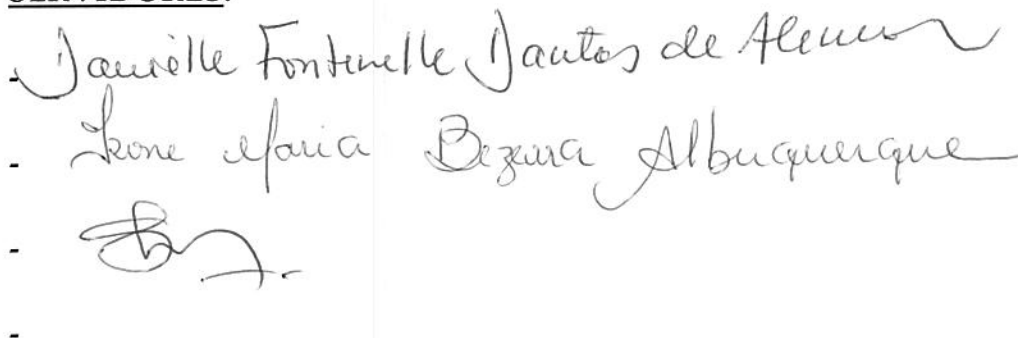 SERVIDORES:
- Danielle Fontenelle Dantas de Alencar
- Ivone Maria Bezerra Albuquerque
-
-